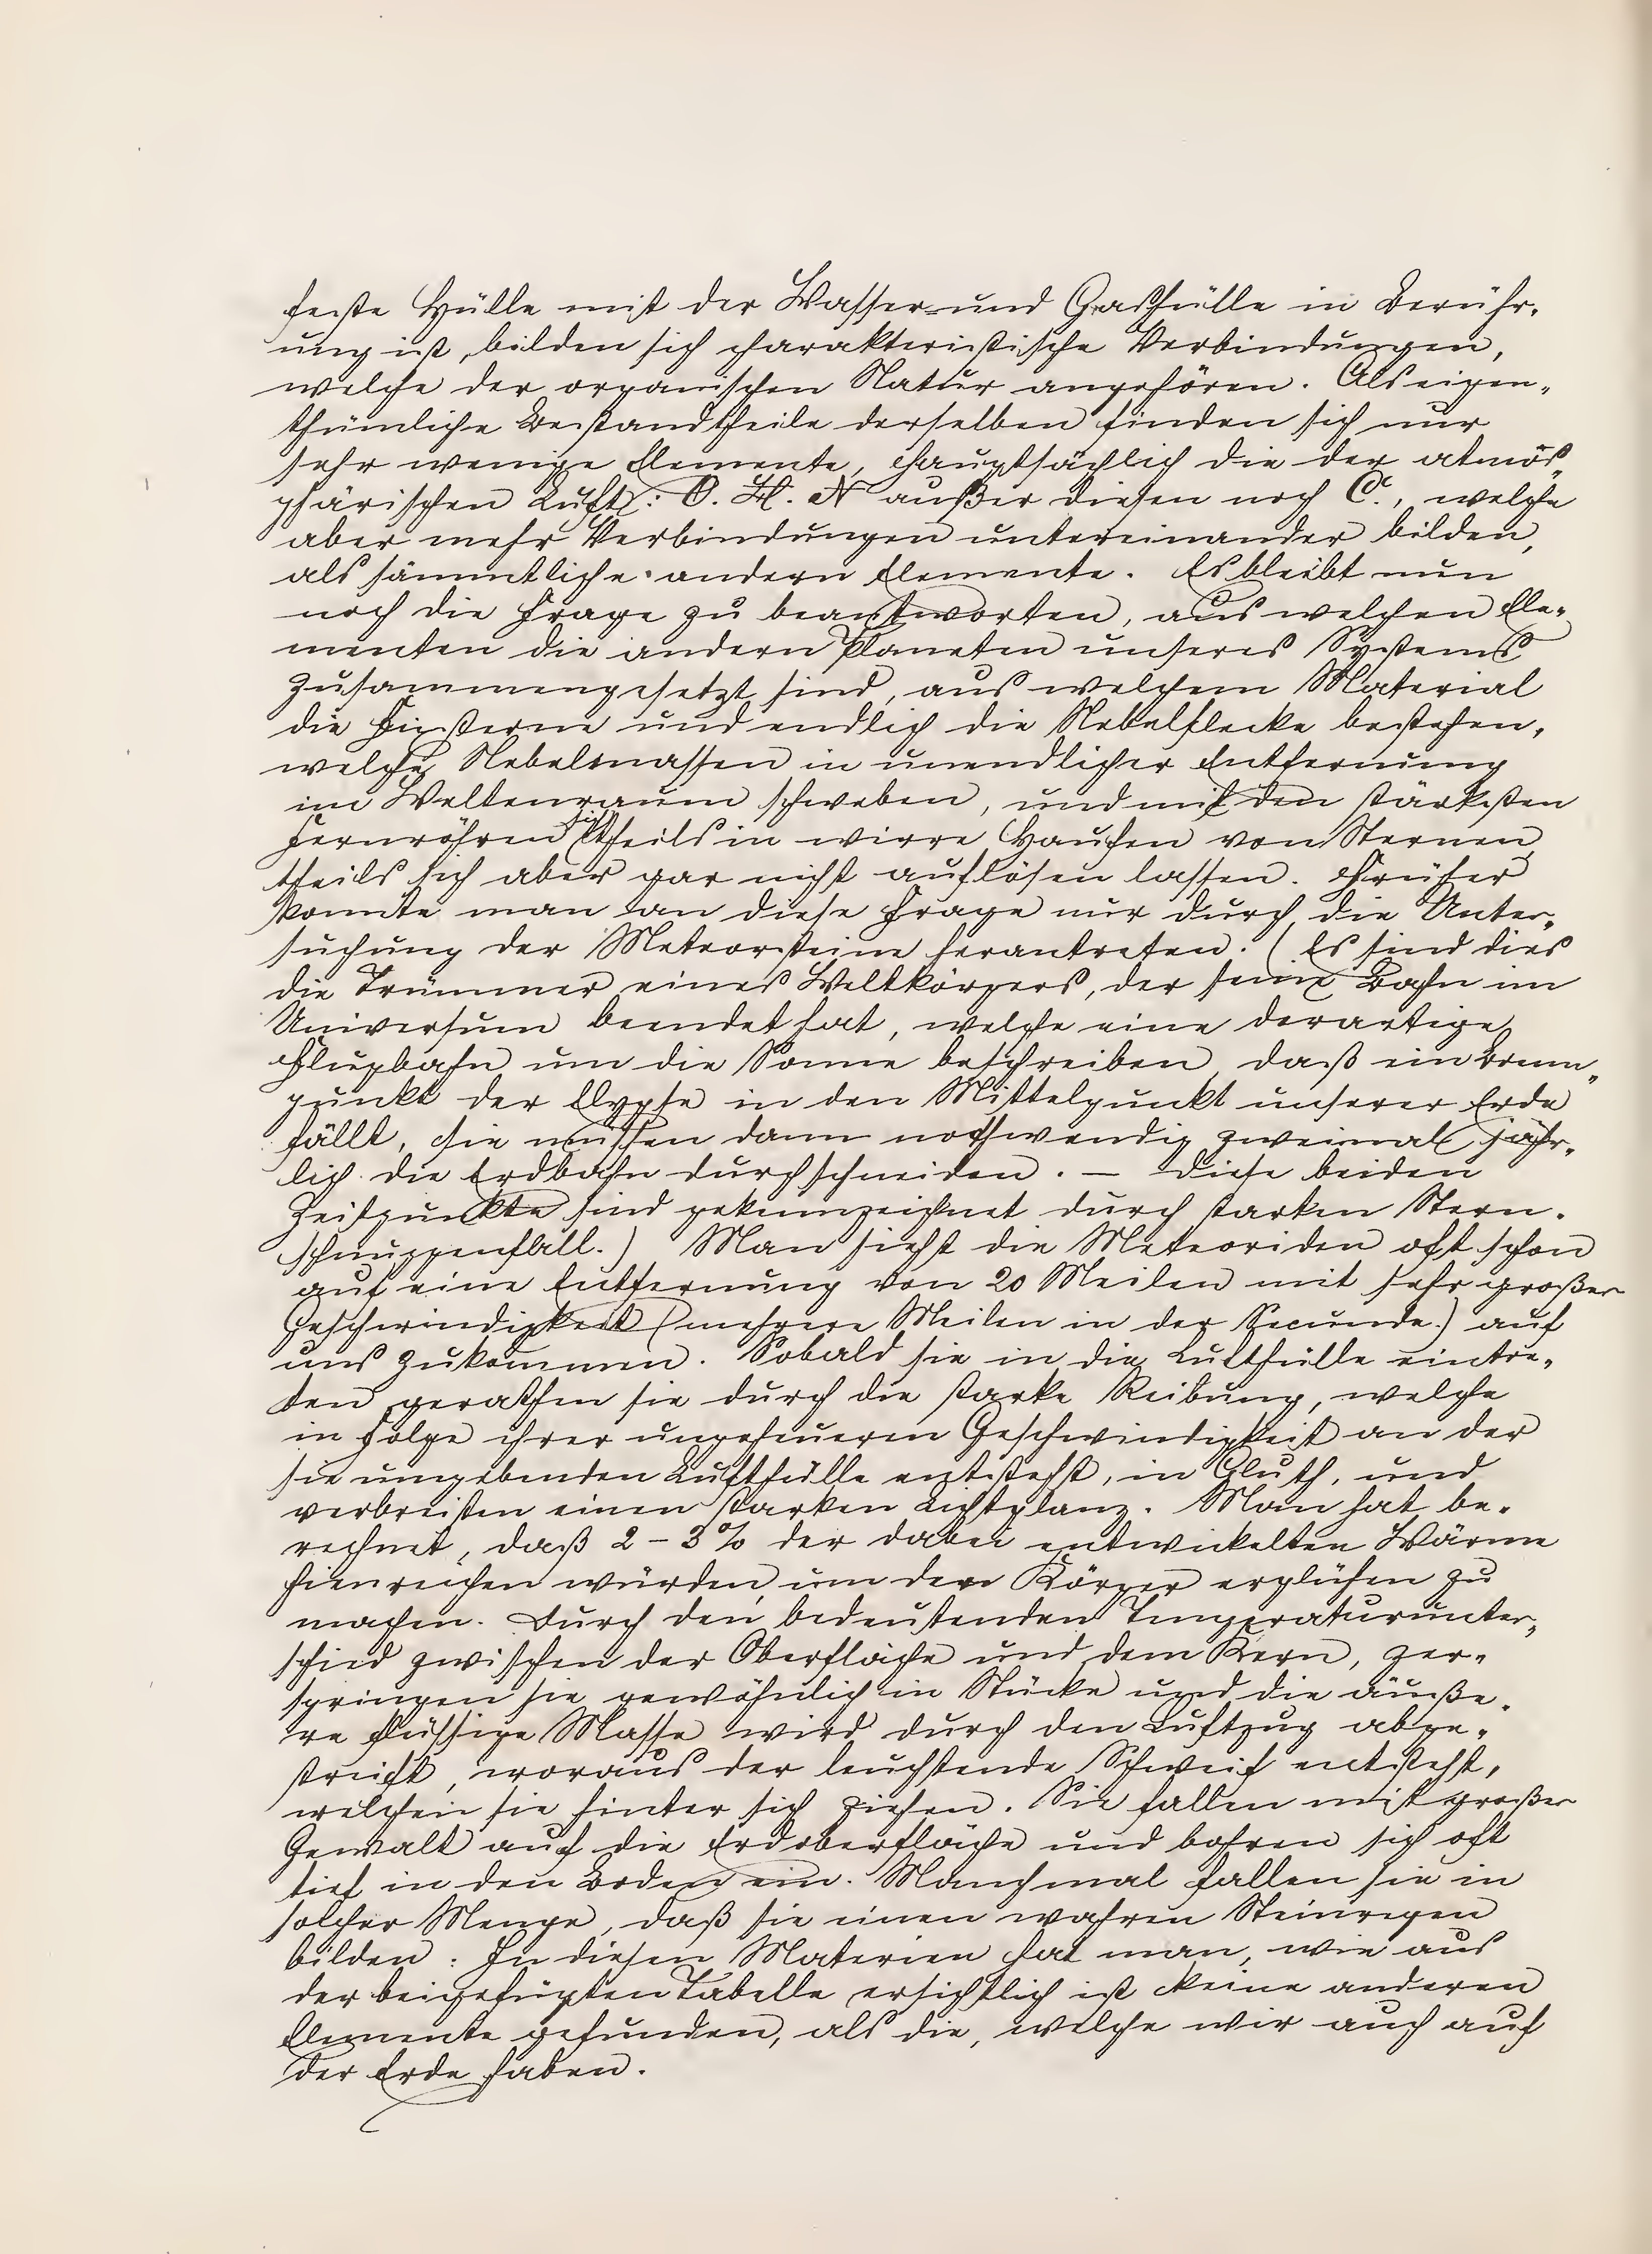 feste Hülle mit der Wasser- und Gashülle in Berühr-
ung ist, bilden sich charakteristische Verbindungen,
welche der organischen Natur angehören. Als eigen-
thümliche Bestandtheile derselben finden sich nur
sehr wenige Elemente, hauptsächlich die der atmos-
phärischen Luft: O. H. N außer diesen noch C., welche
aber mehr Verbindungen untereinander bilden,
als sämmtliche andern Elemente. Es bleibt nun
noch die Frage zu beantworten, aus welchen Ele-
menten die andern Planeten unseres Systems
zusammengesetzt sind, aus welchem Material
die Fixsterne und endlich die Nebelflecke bestehen,
welche Nebelmassen in unendlicher Entfernung
im Weltenraum schweben, und mit den stärksten
Fernröhren sich theils in wirre Haufen von Sternen,
theils sich aber gar nicht auflösen lassen. Früher
konnte man an diese Frage nur durch die Unter-
suchung der Meteorsteine herantreten. (Es sind dies
die Trümmer eines Weltkörpers, der seine Bahn im
Universum beendet hat, welche eine derartige
Flugbahn um die Sonne beschreiben, daß ein Brenn-
punkt der Elypse in den Mittelpunkt unserer Erde
fällt, sie müssen dann nothwendig zweimal jähr-
lich die Erdbahn durchschneiden. — Diese beiden
Zeitpunkte sind gekennzeichnet durch starken Stern-
schnuppenfall.) Man sieht die Meteoriden oft schon
auf eine Entfernung von 20 Meilen mit sehr großer
Geschwindigkeit (mehrere Meilen in der Secunde.) auf
uns zukommen. Sobald sie in die Lufthülle eintre-
ten gerathen sie durch die starke Reibung, welche
in Folge ihrer ungeheueren Geschwindigkeit an der
sie umgebenden Lufthülle entsteht, in Gluth, und
verbreiten einen starken Lichtglanz. Man hat be-
rechnet, daß 2 – 3 % der dabei entwickelten Wärme
hinreichen würden, um den Körper erglühen zu
machen. Durch den bedeutenden Temperaturunter-
schied zwischen der Oberfläche und dem Kern, zer-
springen sie gewöhnlich in Stücke und die äuße-
re flüssige Masse wird durch den Luftzug abge-
streift, woraus der leuchtende Schweif entsteht,
welchen sie hinter sich ziehen. Sie fallen mit großer
Gewalt auf die Erdoberfläche und bohren sich oft
tief in den Boden ein. Manchmal fallen sie in
solcher Menge, daß sie einen wahren Steinregen
bilden. In diesen Materien hat man, wie aus
der beigefügten Tabelle ersichtlich ist keine anderen
Elemente gefunden, als die, welche wir auch auf
der Erde haben.